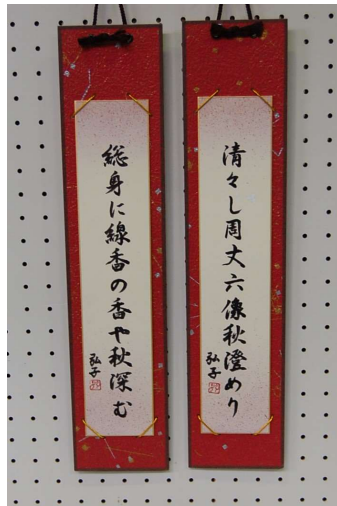 清々し周丈六像秋澄めり
弘子
総身に線香の香や秋深む
弘子